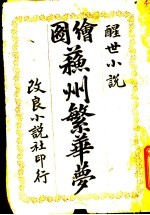 醒世小說
繪圖蘇州繁華夢
改良小說社印行